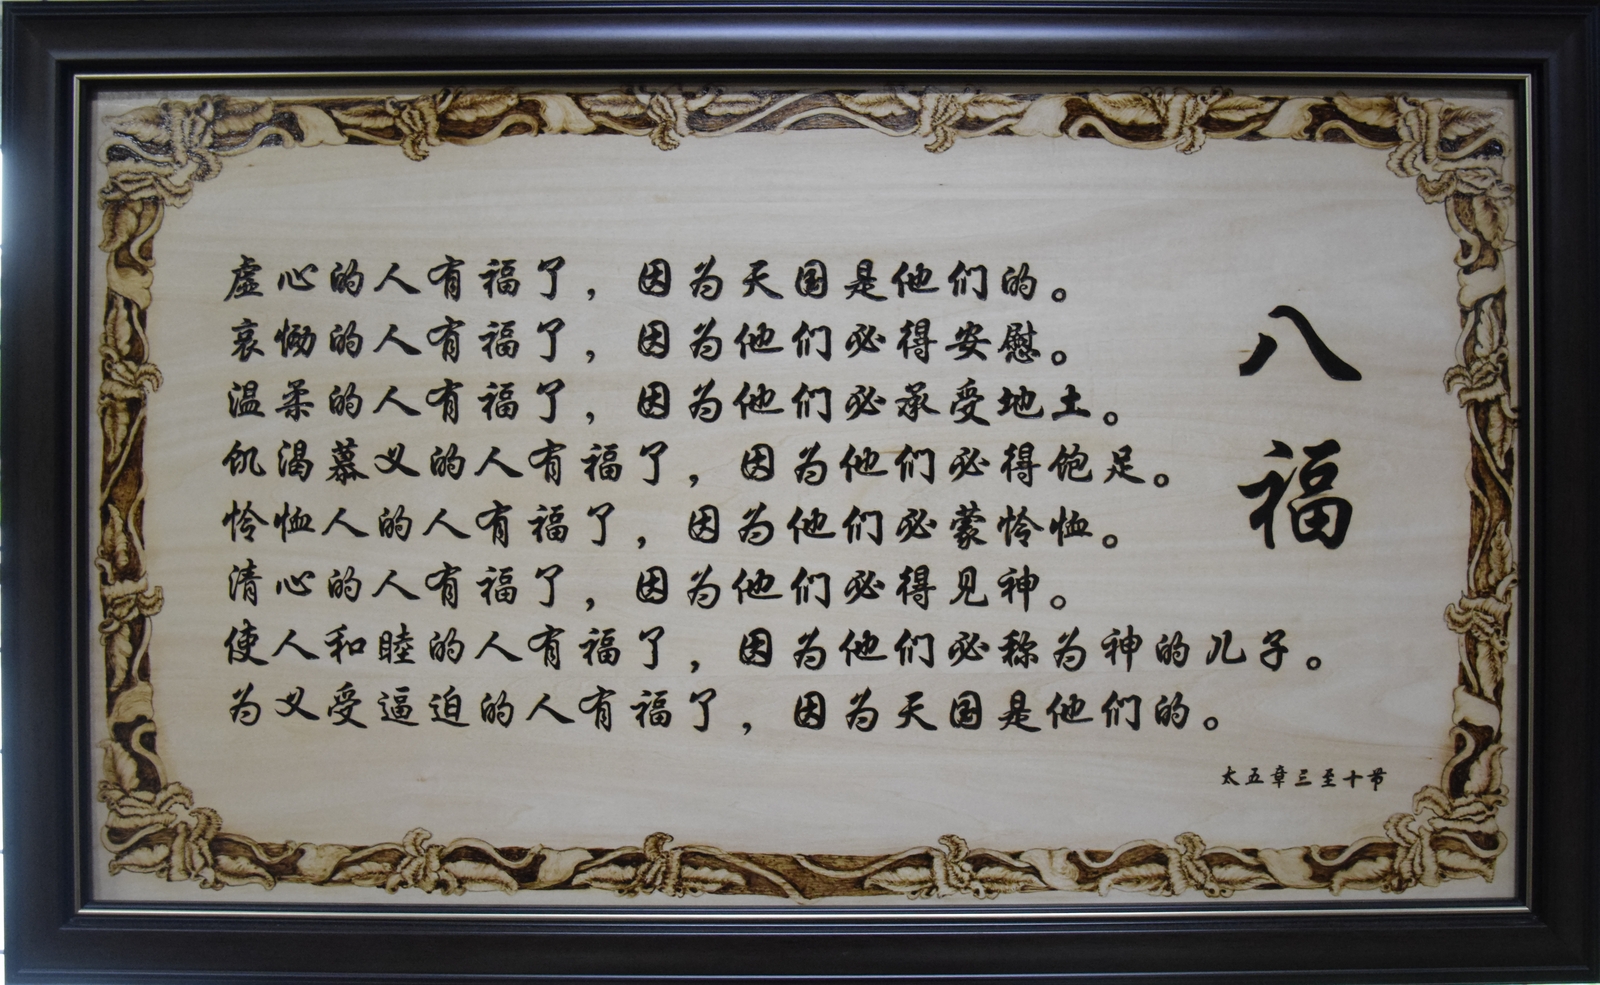 八福
虚心的人有福了，因为天国是他们的。
哀恸的人有福了，因为他们必得安慰。
温柔的人有福了，因为他们必承受地土。
饥渴慕义的人有福了，因为他们必得饱足。
怜恤人的人有福了，因为他们必蒙怜恤。
清心的人有福了，因为他们必得见神。
使人和睦的人有福了，因为他们必称为神的儿子。
为义受逼迫的人有福了，因为天国是他们的。
太五章三至十节